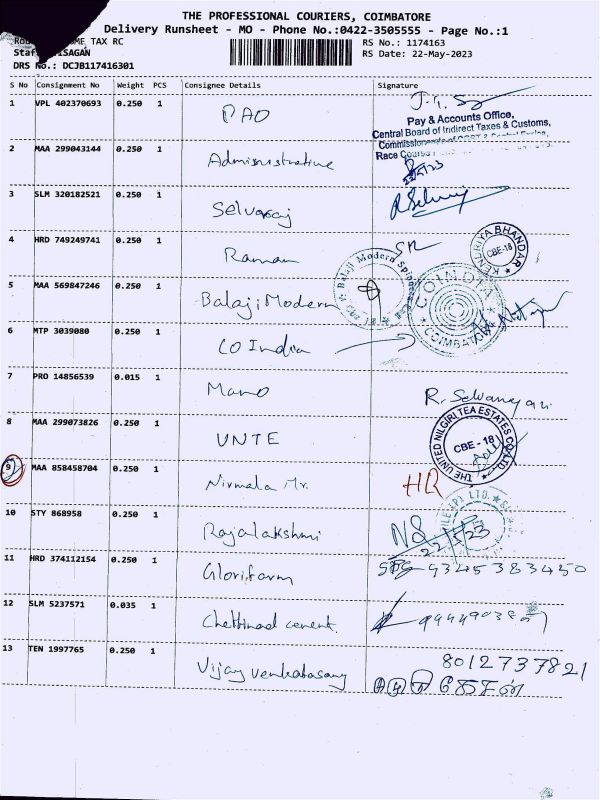 THE PROFESSIONAL COURIERS, COIMBATORE
Delivery Runsheet - MO - Phone No.:0422-3505555 - Page No.:1
TAX RC
RS No.: 1174163
RS Date: 22-May-2023
DRS No.: DCJB117416301
S No Consignment No Weight PCS Consignee Details Signature
1 VPL 402370693 0.250 1 PAO
Pay & Accounts Office,
Central Board of Indirect Taxes & Customs,
2 MAA 299043144 0.250 1 Administrative
Race Course
3 SLM 320182521 0.250 1 Selvaraj
4 HRD 749249741 0.250 1 Raman
KENDRIYA BHANDAR
CBE-18
5 MAA 569847246 0.250 1 Balaji Modern
Balaji Modern
COINDIA
COIMBATORE
6 MTP 3039080 0.250 1 CO India
7 PRO 14856539 0.015 1 Mano
8 MAA 299073826 0.250 1 UNTE
THE UNITED NILGIRI TEA ESTATES CO LTD
CBE - 18
9 MAA 858458704 0.250 1 Nirmala Mr. HR
10 STY 868958 0.250 1 Rajalakshmi
22/5/23
11 HRD 374112154 0.250 1 Glorifarm 9345383450
12 SLM 5237571 0.035 1 Chettinad cement
13 TEN 1997765 0.250 1 8012737821